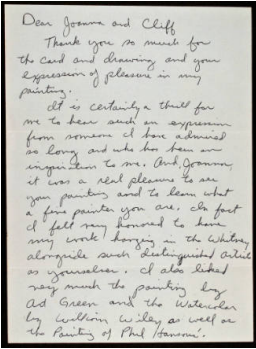 Dear Joanna and Cliff
Thank you so much for
the card and drawing and your
expression of pleasure in my
painting.
It is certainly a thrill for
me to hear such an expression
from someone I have admired
so long and who has been an
inspiration to me. And, Joanna,
it was a real pleasure to see
your painting and to learn what
a fine painter you are. In fact
I felt very honored to have
my work hanging in the Whitney
alongside such distinguished artists
as yourselves. I also liked
very much the painting by
Ad Green and the Watercolor
by William Wiley as well as
the Painting of Phil Hanson's.